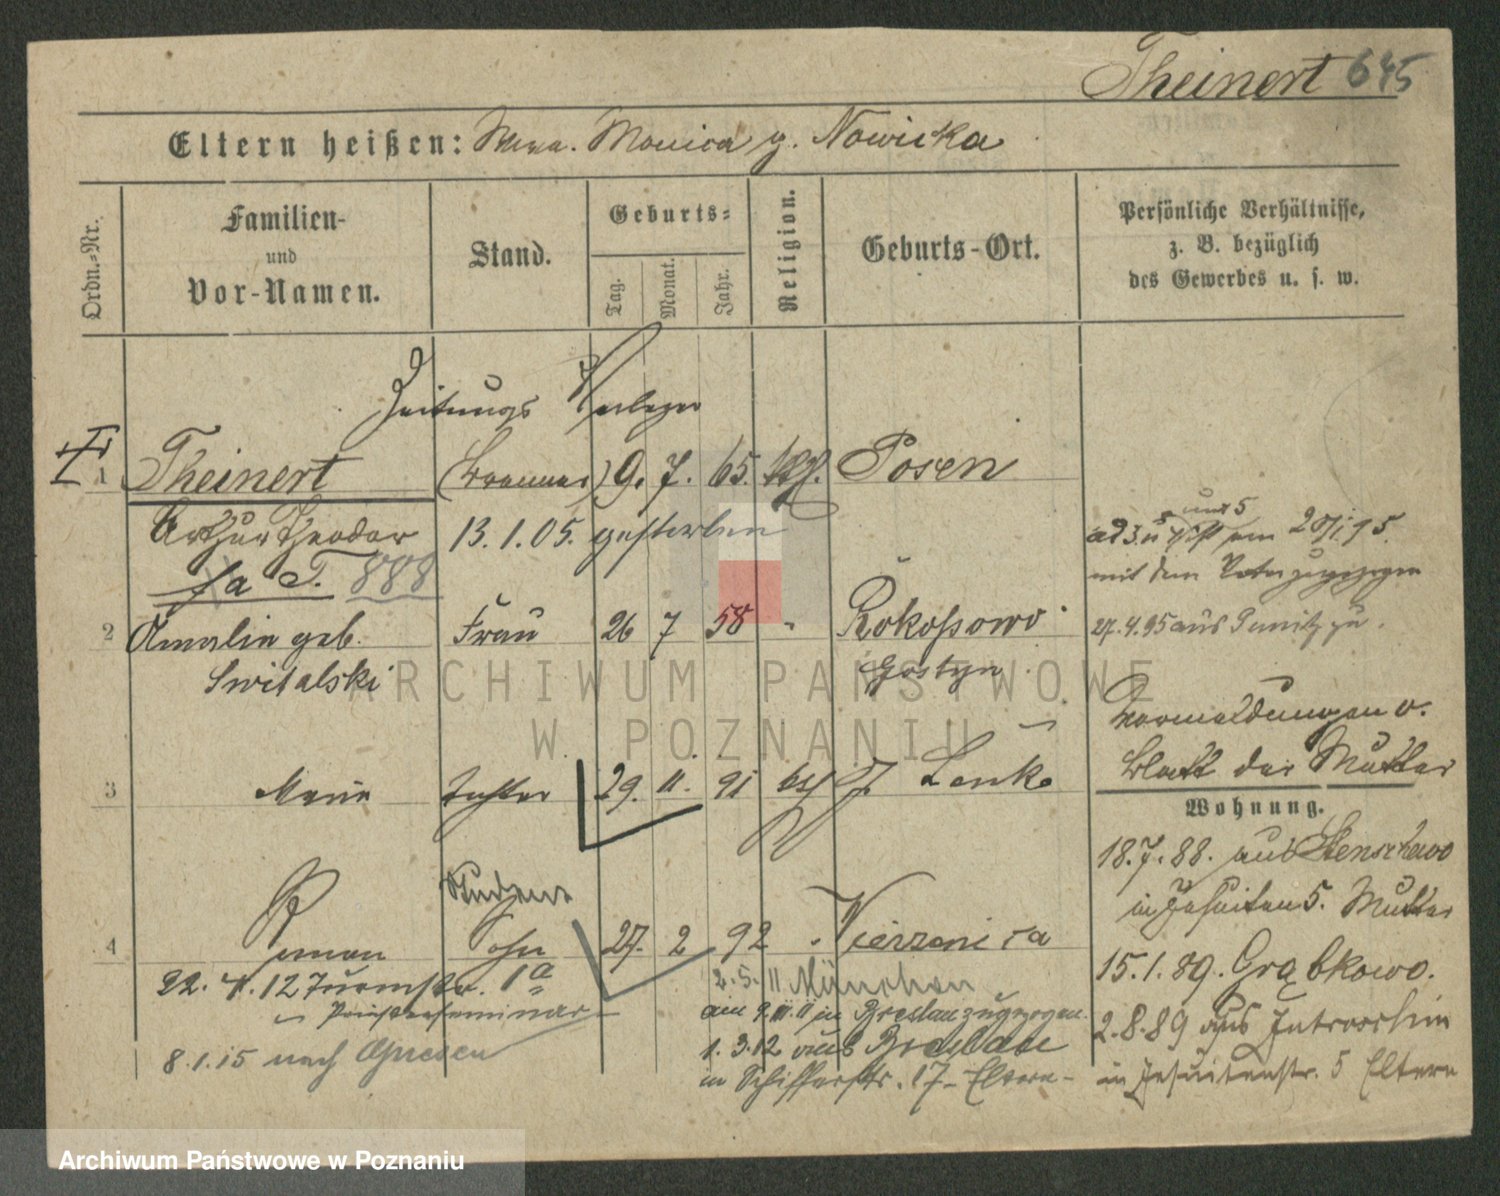 Theinert 645
Eltern heißen: Wwe. Monica g. Nowicka
Ordn.-Nr.
Familien-
und
Vor-Namen.
Stand.
Geburts-
Tag.
Monat.
Jahr.
Religion.
Geburts-Ort.
Persönliche Verhältnisse,
z. B. bezüglich
des Gewerbes u. s. w.
Zeitungs Verleger
1 Theinert (Brenner) 9. 7. 65. kth. Posen
Arthur Theodor 13.1.05. gestorben
T. 888
2 Amalie geb. Frau 26 7 58 " Rokossowo
Switalski Gostyn
und 5
mit dem Vater zugezogen
27.4.95 aus Punitz zu.
Vormeldungen v.
Blatt der Mutter
3 Marie Tochter 29. 11. 91 Lenke
Wohnung.
18.7.88. aus Stenschewo
in Jesuiten 5. Mutter
Student
4 Roman Sohn 27. 2 92 Vierzonica
15.1.89. Grąbkowo.
22.4.12 Turmstr. 1a
2.5.11 München
Priesterseminar
am 9.III.11 in Breslau zugezogen.
2.8.89 aus Jutroschin
8.1.15 nach Gnesen
1.3.12 aus Breslau
in Schifferstr. 17 - Eltern -
in Jesuitenstr. 5 Eltern
ARCHIWUM PAŃSTWOWE
W POZNANIU
Archiwum Państwowe w Poznaniu